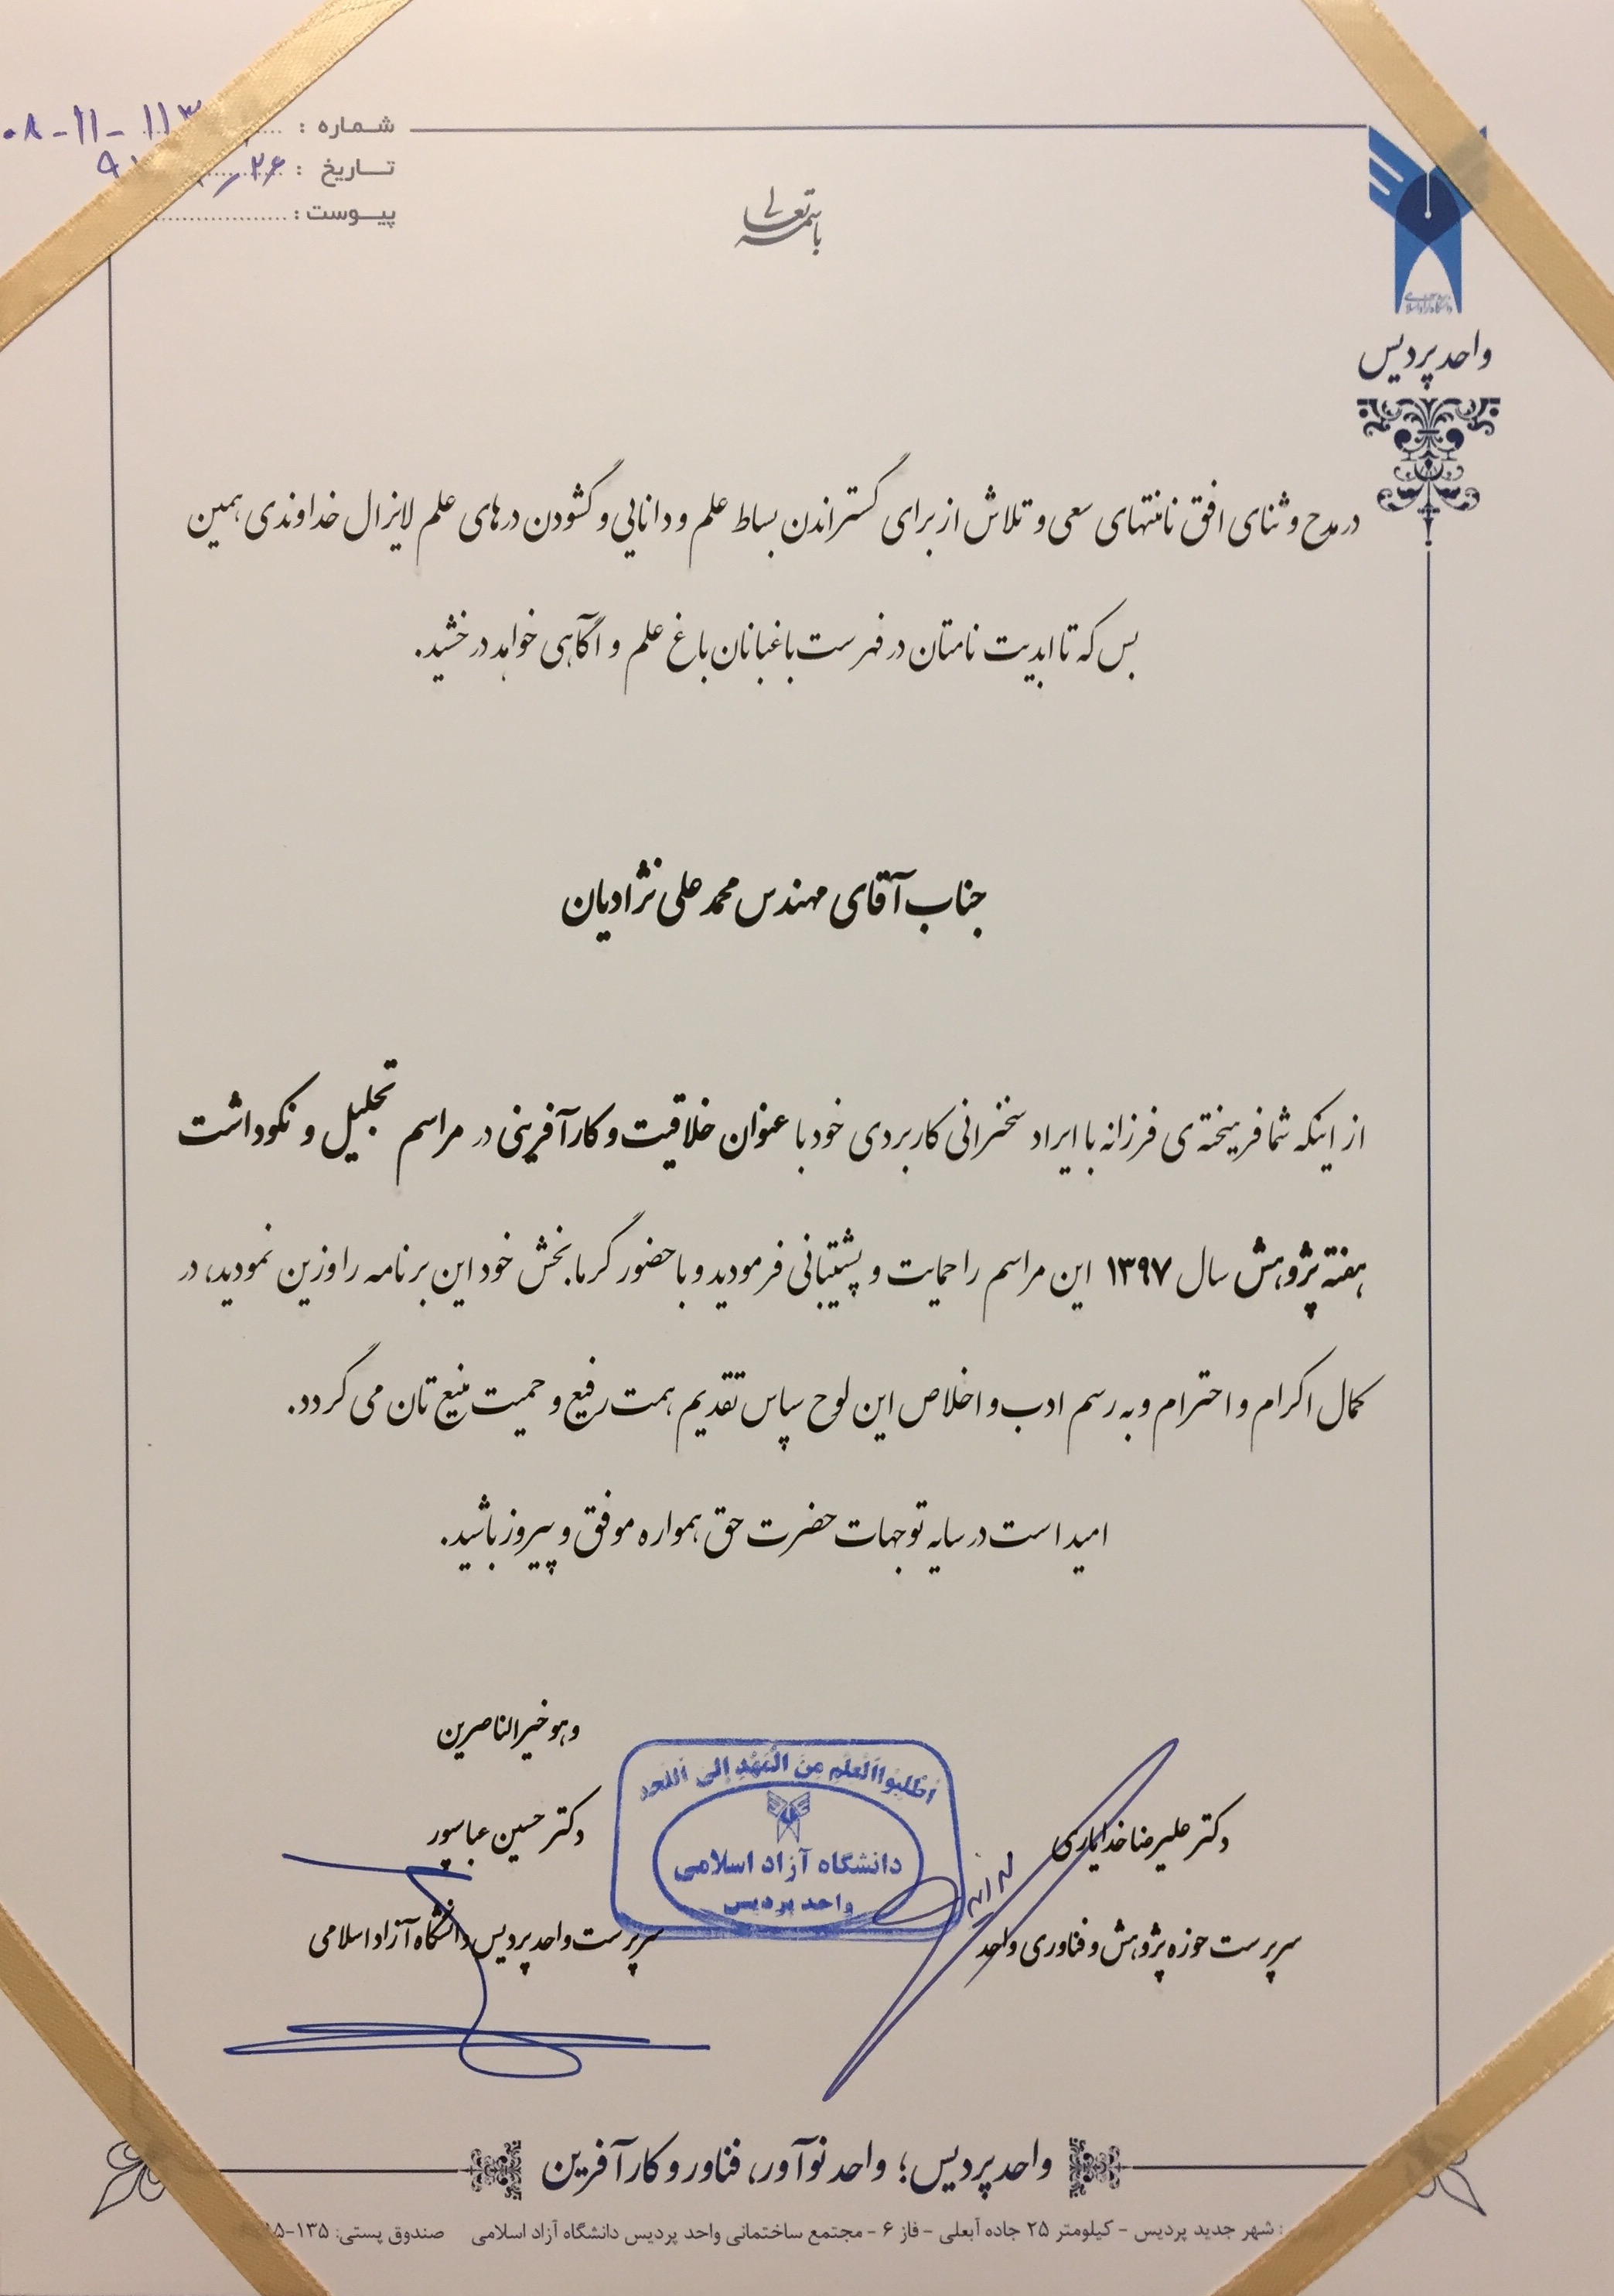 شماره : ۱۱۳ - ۱۱ - ۰۸
تاریخ : ۲۶
پیوست :
باسمه تعالی
واحد پردیس
در مدح و ثنای افق نامنتهای سعی و تلاش از برای گستراندن بساط علم و دانایی و گشودن درهای علم لایزال خداوندی همین
بس که تا ابدیت نامتان در فهرست باغبانان باغ علم و آگاهی خواهد درخشید.
جناب آقای مهندس محمد علی نژادیان
از اینکه شما فرهیخته ی فرزانه با ایراد سخنرانی کاربردی خود با عنوان خلاقیت و کارآفرینی در مراسم تجلیل و نکوداشت
هفته پژوهش سال ۱۳۹۷ این مراسم را حمایت و پشتیبانی فرمودید و با حضور گرما بخش خود این برنامه را وزین نمودید، در
کمال اکرام و احترام و به رسم ادب و اخلاص این لوح سپاس تقدیم همت رفیع و حمیت منیع تان می گردد.
امید است در سایه توجهات حضرت حق همواره موفق و پیروز باشید.
و هو خیر الناصرین
دکتر علیرضا خدایاری
سرپرست حوزه پژوهش و فناوری واحد
اُطْلُبُوا الْعِلْمَ مِنَ الْمَهْدِ إِلَى اللَّحْدِ
دانشگاه آزاد اسلامی
واحد پردیس
دکتر حسین عباسپور
سرپرست واحد پردیس دانشگاه آزاد اسلامی
واحد پردیس؛ واحد نوآور، فناور و کارآفرین
: شهر جدید پردیس - کیلومتر ۲۵ جاده آبعلی - فاز ۶ - مجتمع ساختمانی واحد پردیس دانشگاه آزاد اسلامی صندوق پستی: ۱۳۵-